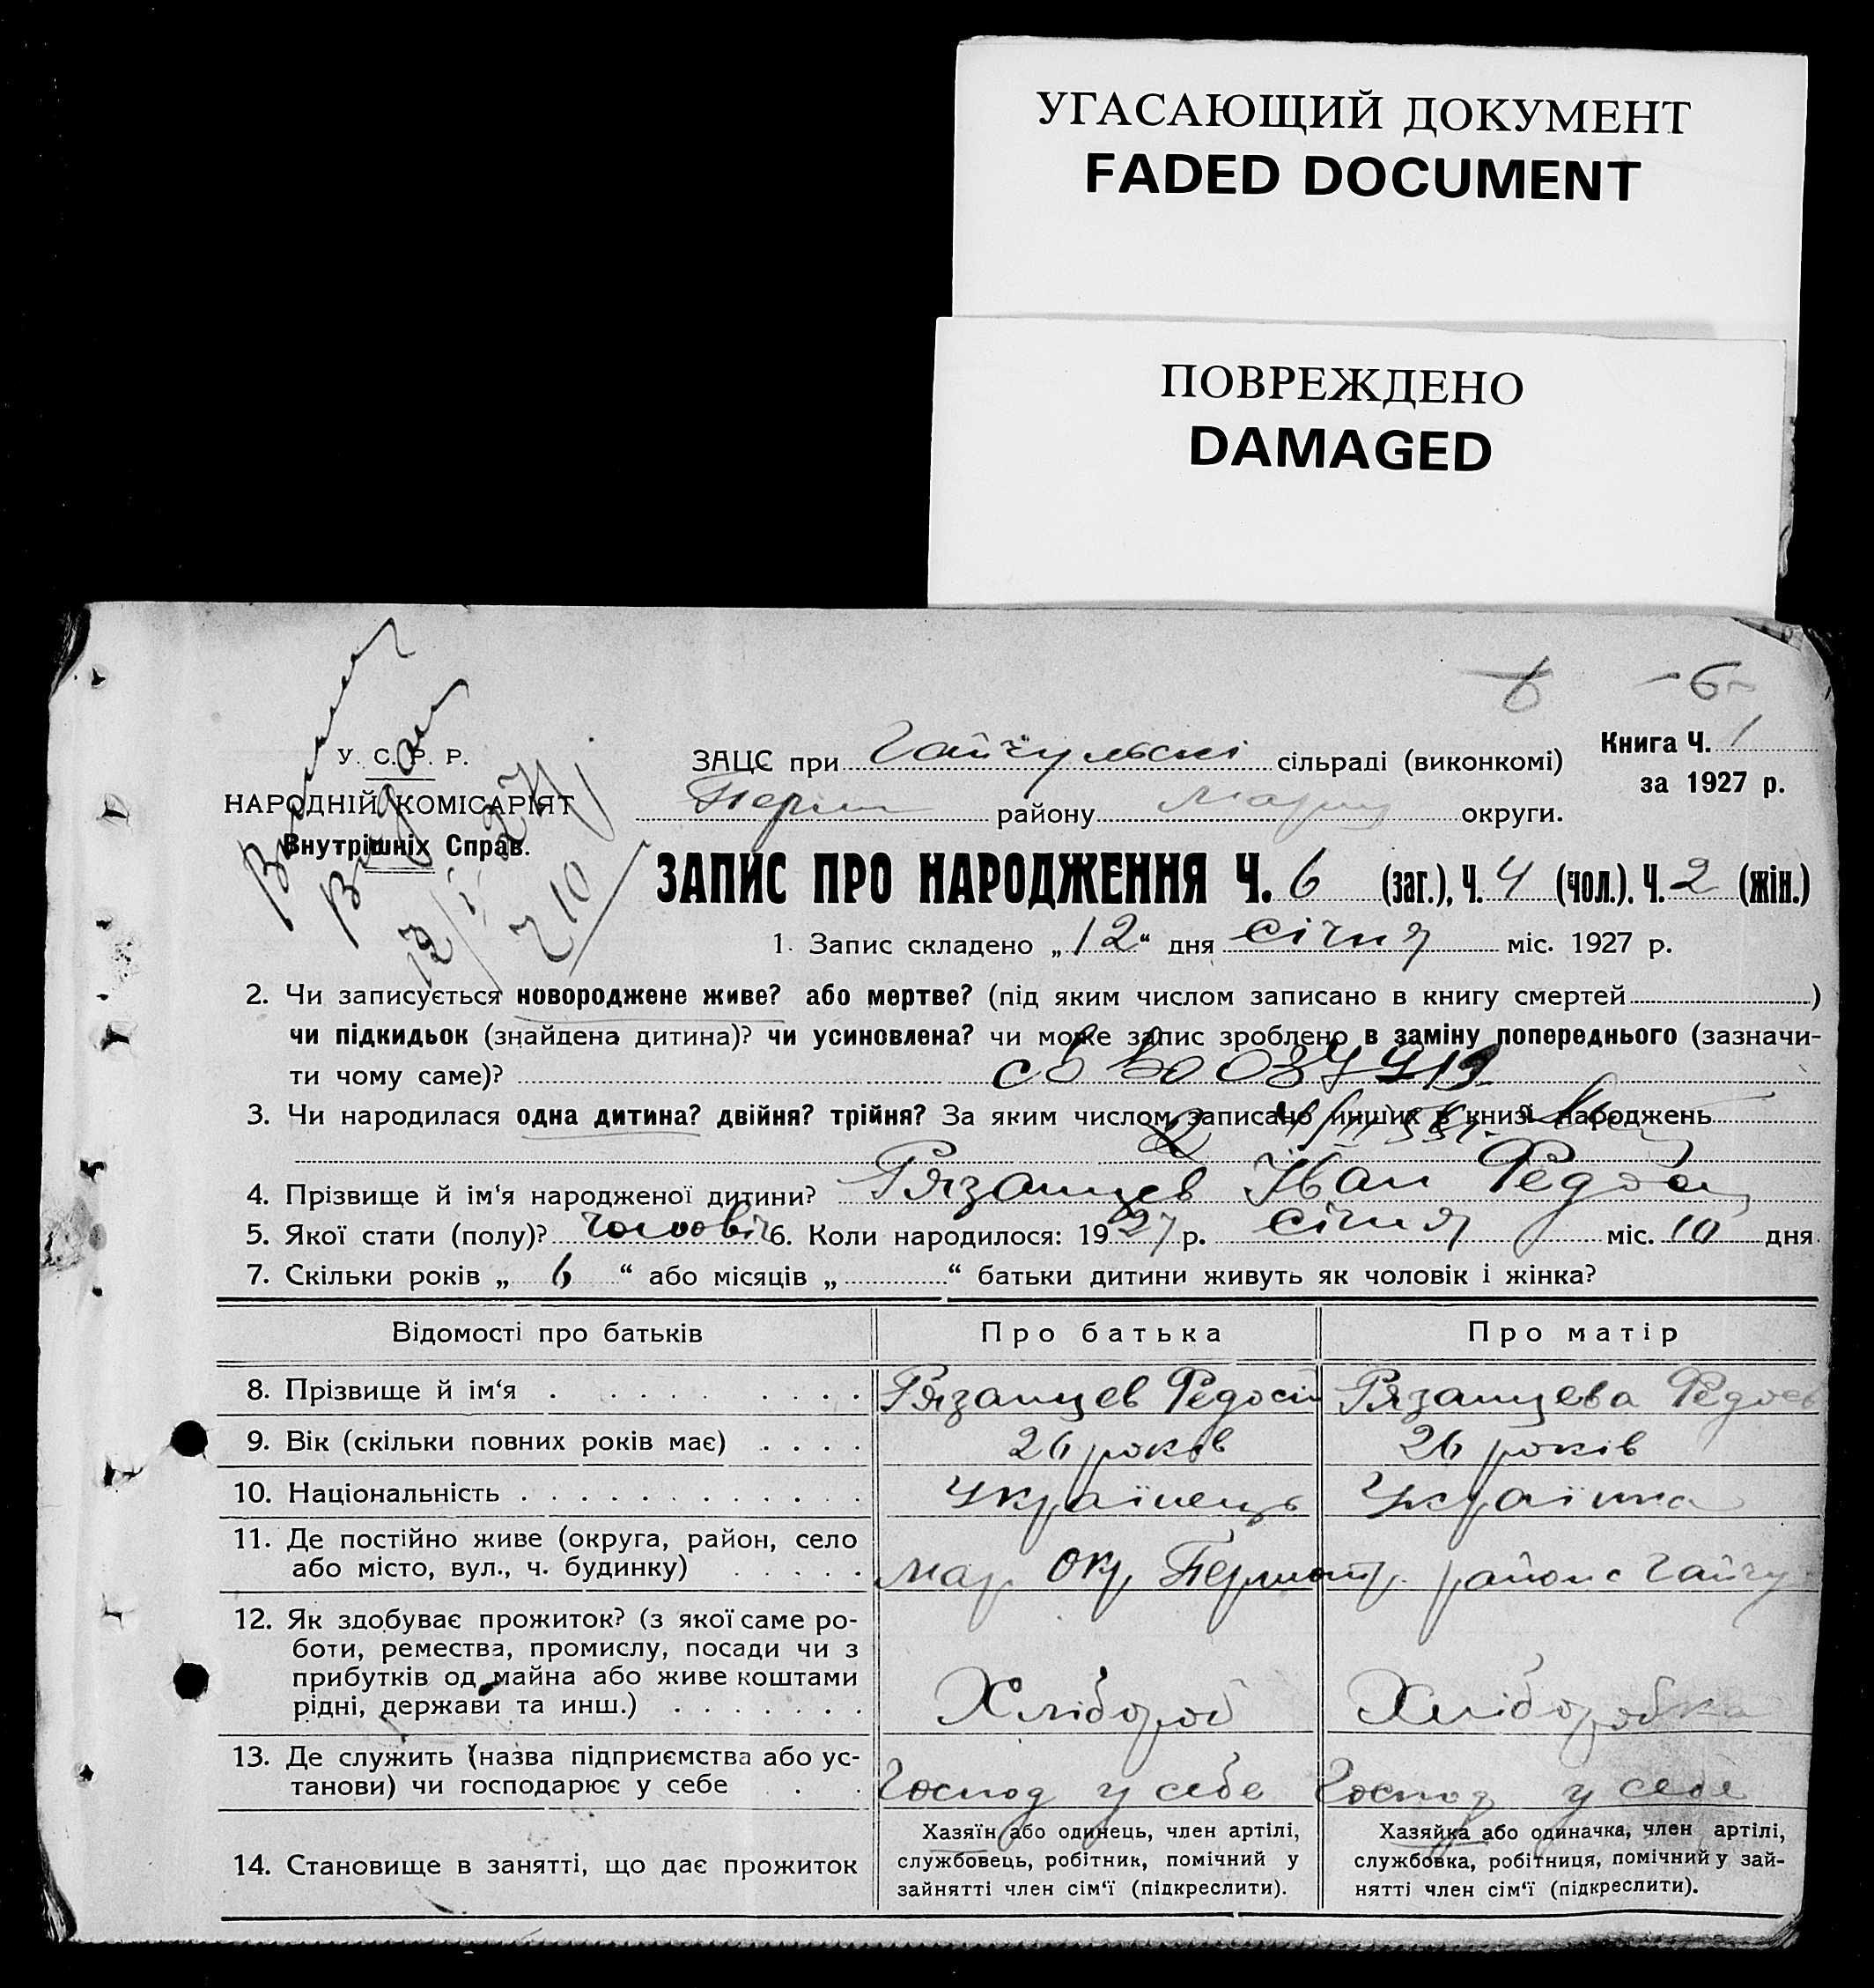 УГАСАЮЩИЙ ДОКУМЕНТ
FADED DOCUMENT
ПОВРЕЖДЕНО
DAMAGED
6 -6-
У. С. Р. Р.
НАРОДНІЙ КОМІСАРІЯТ
Внутрішніх Справ.
ЗАЦС при Гайчульскі сільраді (виконкомі)
Книга Ч. 1
за 1927 р.
району округи.
ЗАПИС ПРО НАРОДЖЕННЯ Ч. 6 (заг.), Ч. 4 (чол.). Ч. 2 (жін.)
1. Запис складено „12“ дня січня міс. 1927 р.
2. Чи записується новороджене живе? або мертве? (під яким числом записано в книгу смертей )
чи підкидьок (знайдена дитина)? чи усиновлена? чи може запис зроблено в заміну попереднього (зазначи-
ти чому саме)?
3. Чи народилася одна дитина? двійня? трійня? За яким числом записано инших в книзі народжень
4. Прізвище й ім‘я народженої дитини? Рязанцев Іван
5. Якої стати (полу)? чоловіч 6. Коли народилося: 1927 р. січня міс. 10 дня
7. Скільки років „ 6 “ або місяців „ “ батьки дитини живуть як чоловік і жінка?
Відомості про батьків Про батька Про матір
8. Прізвище й ім‘я Рязанцев Федосій Рязанцева
9. Вік (скільки повних років має) 26 років 26 років
10. Національність Українець Українка
11. Де постійно живе (округа, район, село
або місто, вул., ч. будинку) Мар. Окр.
12. Як здобуває прожиток? (з якої саме ро-
боти, ремества, промислу, посади чи з
прибутків од майна або живе коштами
рідні, держави та инш.) Хлібороб Хлиборобка
13. Де служить (назва підприємства або ус-
танови) чи господарює у себе Господ у себе Господ у себе
14. Становище в занятті, що дає прожиток
Хазяїн або одинець, член артілі,
службовець, робітник, помічний у
зайнятті член сім‘ї (підкреслити).
Хазяйка або одиначка, член артілі,
службовка, робітниця, помічний у зай-
нятті член сім‘ї (підкреслити).